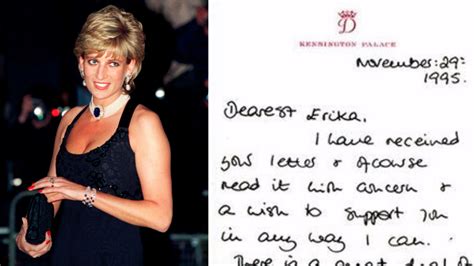 D
KENSINGTON PALACE
November: 29th:
1995.
Dearest Erika,
I have received
your letter & ofcourse
read it with concern &
a wish to support you
in any way I can.
There is a great deal of